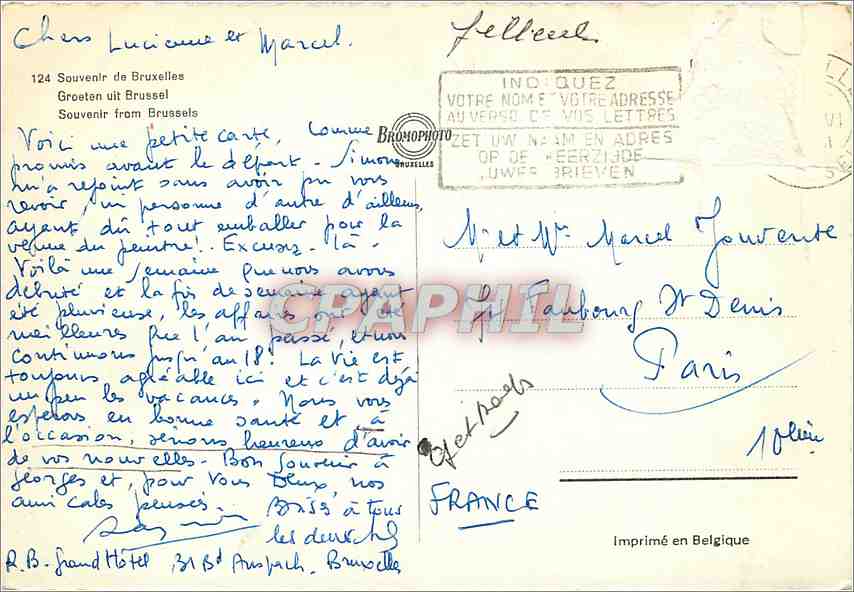 Chers Lucienne et Marcel.
124 Souvenir de Bruxelles
Groeten uit Brussel
Souvenir from Brussels
Voici une petite carte, comme
promis avant le départ - Simone
m'a rejoint sans avoir pu vous
revoir, ni personne d'autre d'ailleurs,
ayant dû tout emballer pour la
venue du peintre!. Excusez-là.
Voilà une semaine que nous avons
débuté et la fin de semaine ayant
été pluvieuse, les affaires ont été
meilleures que l'an passé, et nous
continuons jusqu'au 18! La vie est
toujours agréable ici et c'est déjà
un peu les vacances. Nous vous
espérons en bonne santé et à
l'occasion, serions heureux d'avoir
de vos nouvelles - Bon souvenir à
Georges et, pour vous deux, nos
amicales pensées.
Bises à tous
les deux
R.B - Grand Hôtel, 31 Bd Anspach. Bruxelles
BROMOPHOTO
BRUXELLES
INDIQUEZ
VOTRE NOM ET VOTRE ADRESSE
AU VERSO DE VOS LETTRES
ZET UW NAAM EN ADRES
OP DE KEERZIJDE
UWER BRIEVEN
Mr et Me Marcel Jouvente
Faubourg St Denis
Paris
10
FRANCE
Imprimé en Belgique
CPAPHIL